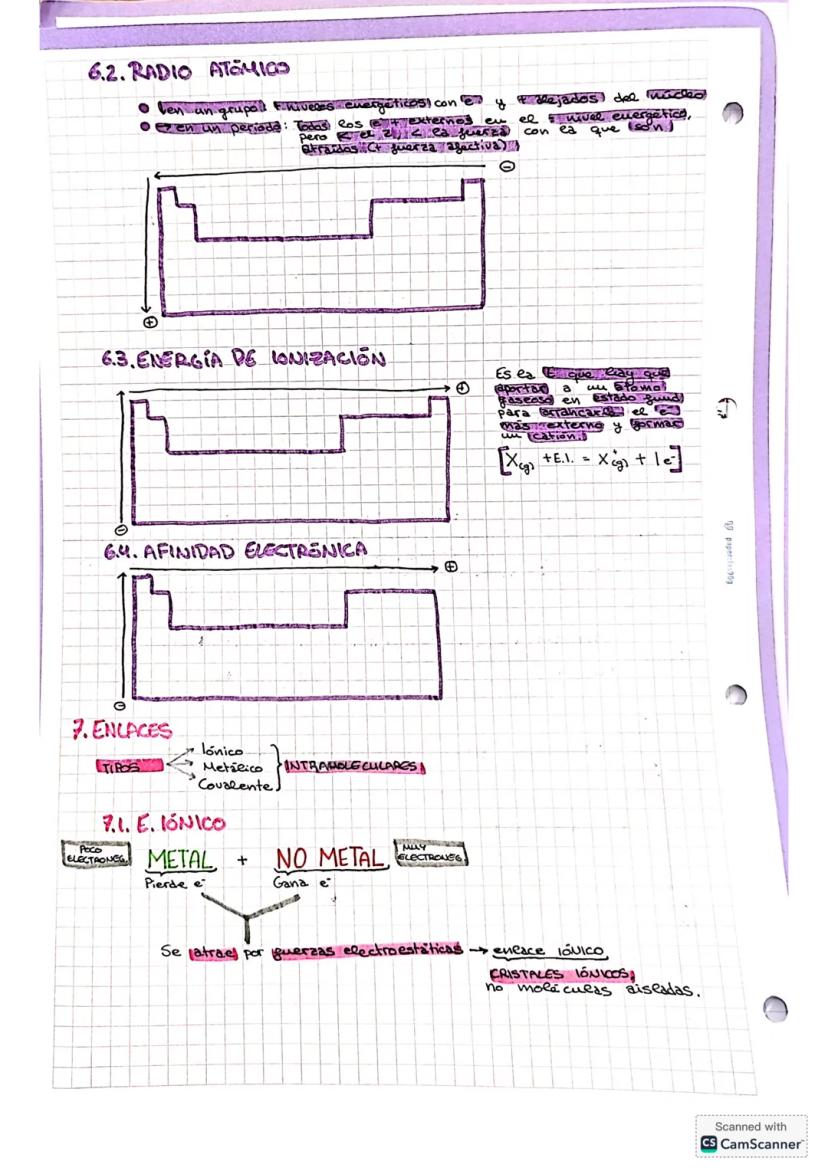 6.2. RADIO ATÓMICO
↓ en un grupo: + niveles energéticos con e⁻ y + alejados del núcleo
↔ en un periodo: Todos los e⁻ + externos en el = nivel energético,
pero < el Z, < la fuerza con la que son
atraídos. (+ fuerza efectiva)
⊖
⊕
6.3. ENERGÍA DE IONIZACIÓN
⊕
Es la E que hay que
aportar a un átomo
gaseoso en estado fund
para arrancarle el e⁻
más externo y formar
un catión.
[X(g) + E.I. = X⁺(g) + 1e⁻]
⊖
6.4. AFINIDAD ELECTRÓNICA
⊕
⊖
7. ENLACES
Iónico
TIPOS Metálico INTRAMOLECULARES
Covalente
7.1. E. IÓNICO
POCO ELECTRONEG. METAL + NO METAL MUY ELECTRONEG
Pierde e⁻ Gana e⁻
Se atrae por fuerzas electroestáticas → enlace IÓNICO
CRISTALES IÓNICOS,
no moléculas aisladas.
Scanned with
CS CamScanner